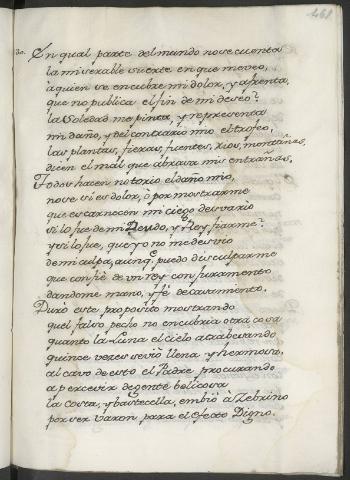 468
30. En qual parte del mundo no se cuenta
la miserable suerte en que me veo,
a quien se encubre mi dolor, y afrenta,
que no publica el fin de mi deseo?
la Soledad me pinta, y representa
mi daño, y del contrario mio el trofeo,
las plantas, fieras, fuentes, rios, montañas,
dicen el mal que abrasa mis entrañas.
Todos hacen notorio el daño mio,
no se si es dolor, ò por mostrarme
que escarnecen mi ciego desvario
si lo fue de mi Deudo, y Rey fiarme?
y si lo fue, que yo no me desvio
de mi culpa, aunq. puedo disculparme
que confiè de un Rey con juramento
dandome mano, y fè de casamiento.
Durò este proposito mostrando
quel falso pecho no encubria otra cosa
quanto la Luna el cielo atrabesando
quince veces se viò llena y hermosa,
al cavo de esto el Padre procurando
apercevir de gente belicosa
la costa, y bastecella, embiò à Zebrino
por ser varon para el efecto Digno.